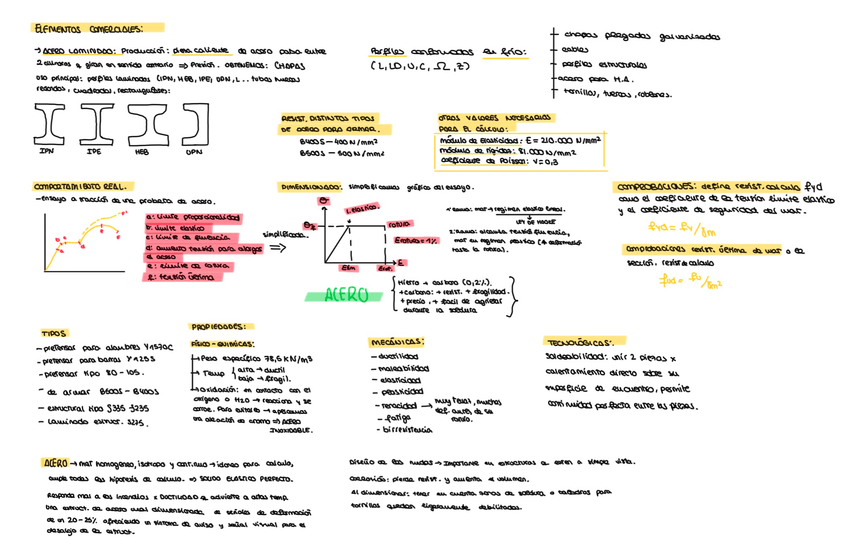 ELEMENTOS COMERCIALES:
→ ACERO LAMINADO: Producción: plana caliente de acero pasa entre
2 cilindros q giran en sentido contrario ⇒ Presión. OBTENEMOS: CHAPAS
Uso principal: perfiles laminados (IPN, HEB, IPE, UPN, L... tubos huecos
redondos, cuadrados, rectangulares:
IPN IPE HEB UPN
Perfiles conformados en frío:
(L, LD, U, C, Ω, Z)
chapas plegadas galvanizadas
cables
perfiles estructurales
acero para H.A.
tornillos, tuercas, roblones.
RESIST. DISTINTOS TIPOS
DE ACERO PARA ARMAR.
B400S - 400 N/mm²
B500S - 500 N/mm²
OTROS VALORES NECESARIOS
PARA EL CÁLCULO:
módulo de Elasticidad: E = 210.000 N/mm²
módulo de rigidez: 81.000 N/mm²
coeficiente de Poisson: V = 0,3
COMPORTAMIENTO REAL.
- Ensayo a tracción de una probeta de acero.
a: Límite proporcionalidad
b: límite elástico
c: Límite de fluencia
d: aumento tensión para alargar
el acero
e: límite de rotura
f: tensión última
simplificada
⇒
DIMENSIONADO: simplificamos gráfica del ensayo.
σ
L. elástico.
rotura
Erotura = 1%
E
1 rama: mat → régimen elástico lineal.
LEY DE HOOKE
2: rama: alcanza tensión fluencia,
mat en régimen plástico (↑ deformación
hasta la rotura).
ACERO
Hierro + carbono (0,2%).
+ carbono: + resist. + fragilidad.
+ precio, + fácil de agrietar
durante la soldadura
COMPROBACIONES: define resist. cálculo fyd
como el coeficiente de la tensión límite elástico
y el coeficiente de seguridad del mat.
fyd = fy/γm
comprobaciones resist. última de mat o la
sección, resist cálculo
fud = fu/γm²
TIPOS
- pretensar para alambres Y1570C
- pretensar para barras
- pretensar tipo 80 - 105.
- de armar B500S - B400S
- estructural tipo S335 S235
- Laminado estruct. S275.
PROPIEDADES:
FÍSICO-QUÍMICAS:
→ Peso específico 78,5 KN/m3
→ Temp alta → dúctil
baja → frágil.
→ Oxidación: en contacto con el
oxígeno o H2O → reacciona y se
corroe. Para evitarlo → aplicamos
una aleación de cromo ⇒ ACERO
INOXIDABLE.
MECÁNICAS:
- ductilidad
- maleabilidad
- elasticidad
- plasticidad
- tenacidad → muy tenaz, muchas
def. antes de su
rotura.
- fatiga
- birresistencia
TECNOLÓGICAS:
Soldeabilidad: unir 2 piezas x
calentamiento directo sobre su
superficie de encuentro, permite
continuidad perfecta entre las piezas.
ACERO → mat homogéneo, isótropo y continuo → idóneo para cálculo,
cumple todas las hipótesis de cálculo. ⇒ SÓLIDO ELÁSTICO PERFECTO.
Responde mal a los incendios x DUCTILIDAD q adquiere a altas temp.
Una estruct. de acero mal dimensionada, da señales de deformación
de un 20-25% ofreciendo un sistema de aviso y señal visual para el
desalojo de la estruct.
Diseño de los nudos → Importante en estructuras q estén a simple vista.
Corrosión: pierde resist. y aumenta el volumen.
Al dimensionar: tener en cuenta zonas de soldura o taladros para
tornillos quedan ligeramente debilitadas.